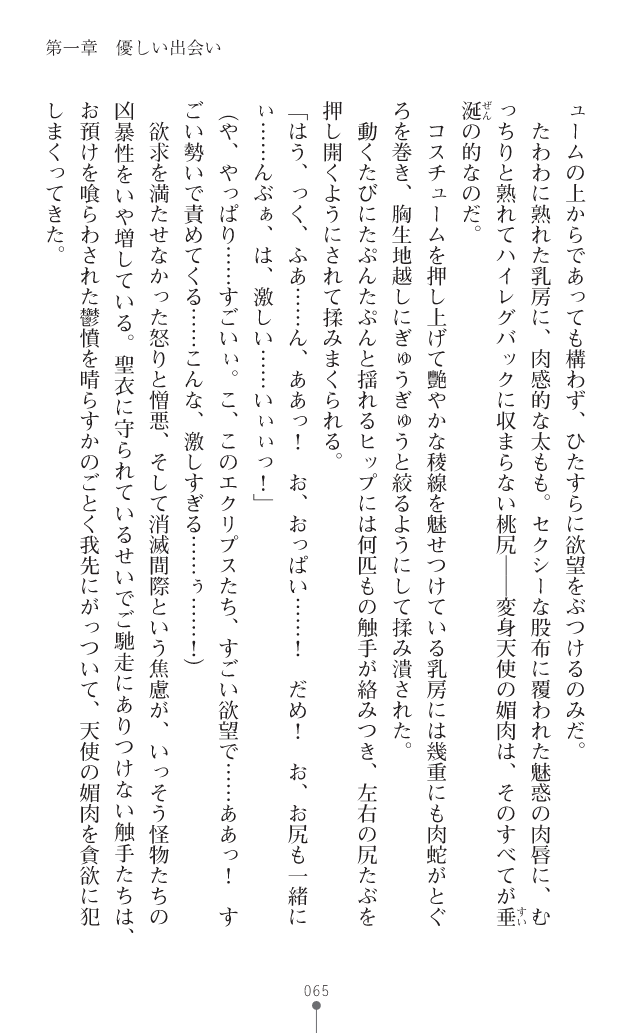 第一章　優しい出会い
ュームの上からであっても構わず、ひたすらに欲望をぶつけるのみだ。
　たわわに熟れた乳房に、肉感的な太もも。セクシーな股布に覆われた魅惑の肉唇に、む
っちりと熟れてハイレグバックに収まらない桃尻――変身天使の媚肉は、そのすべてが垂
涎の的なのだ。
　コスチュームを押し上げて艶やかな稜線を魅せつけている乳房には幾重にも肉蛇がとぐ
ろを巻き、胸生地越しにぎゅうぎゅうと絞るようにして揉み潰された。
　動くたびにたぷんたぷんと揺れるヒップには何匹もの触手が絡みつき、左右の尻たぶを
押し開くようにされて揉みまくられる。
「はう、っく、ふあ……ん、ああっ！　お、おっぱい……！　だめ！　お、お尻も一緒に
ぃ……んぶぁ、は、激しい……いぃぃっ！」
（や、やっぱり……すごいぃ。こ、このエクリプスたち、すごい欲望で……ああっ！　す
ごい勢いで責めてくる……こんな、激しすぎる……ぅ……！）
　欲求を満たせなかった怒りと憎悪、そして消滅間際という焦慮が、いっそう怪物たちの
凶暴性をいや増している。聖衣に守られているせいでご馳走にありつけない触手たちは、
お預けを喰らわされた鬱憤を晴らすかのごとく我先にがっついて、天使の媚肉を貪欲に犯
しまくってきた。
065